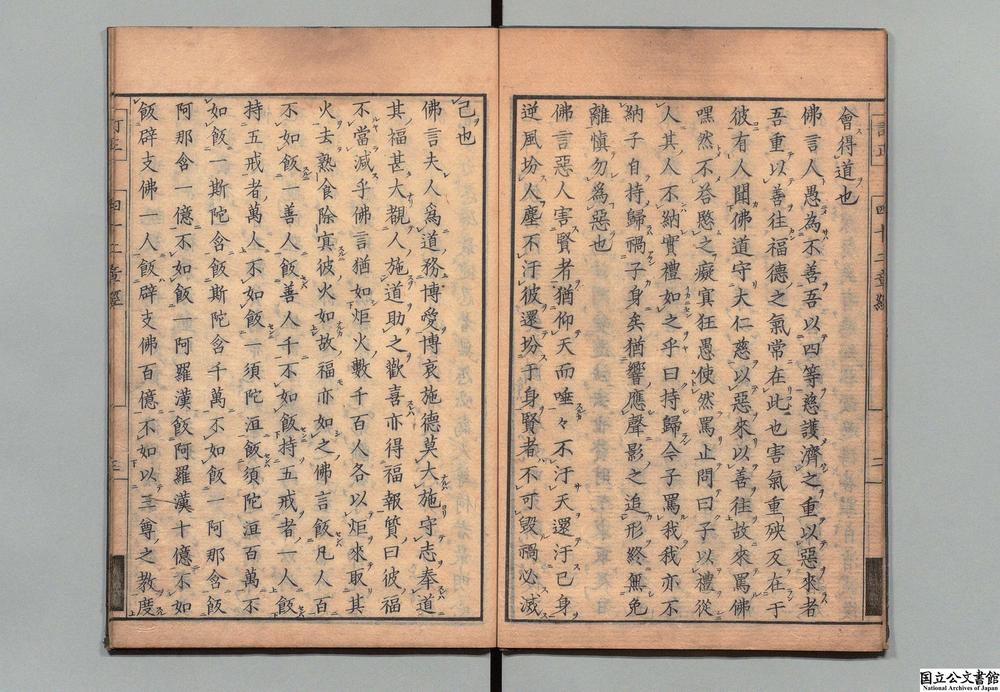 會得道也
佛言人愚為不善吾以四等慈護濟之重以惡來者
吾重以善往福德之氣常在此也害氣重殃反在于
彼有人聞佛道守大仁慈以惡來以善往故來罵佛
嘿然不荅愍之癡冥狂愚使然罵止問曰子以禮從
人其人不納實禮如之乎曰持歸今子罵我我亦不
納子自持歸禍子身矣猶響應聲影之追形終無免
離慎勿為惡也
佛言惡人害賢者猶仰天而唾々不汙天還汙己身
逆風坋人塵不汙彼還坋于身賢者不可毀禍必滅
己也
佛言夫人為道務博愛博哀施德莫大施守志奉道
其福甚大覩人施道助之歡喜亦得福報質曰彼福
不當減乎佛言猶如炬火數千百人各以炬來取其
火去熟食除冥彼火如故福亦如之佛言飯凡人百
不如飯一善人飯善人千不如飯持五戒者一人飯
持五戒者萬人不如飯一須陀洹飯須陀洹百萬不
如飯一斯陀含飯斯陀含千萬不如飯一阿那含飯
阿那含一億不如飯一阿羅漢飯阿羅漢十億不如
飯辟支佛一人飯辟支佛百億不如以三尊之教度
国立公文書館
National Archives of Japan